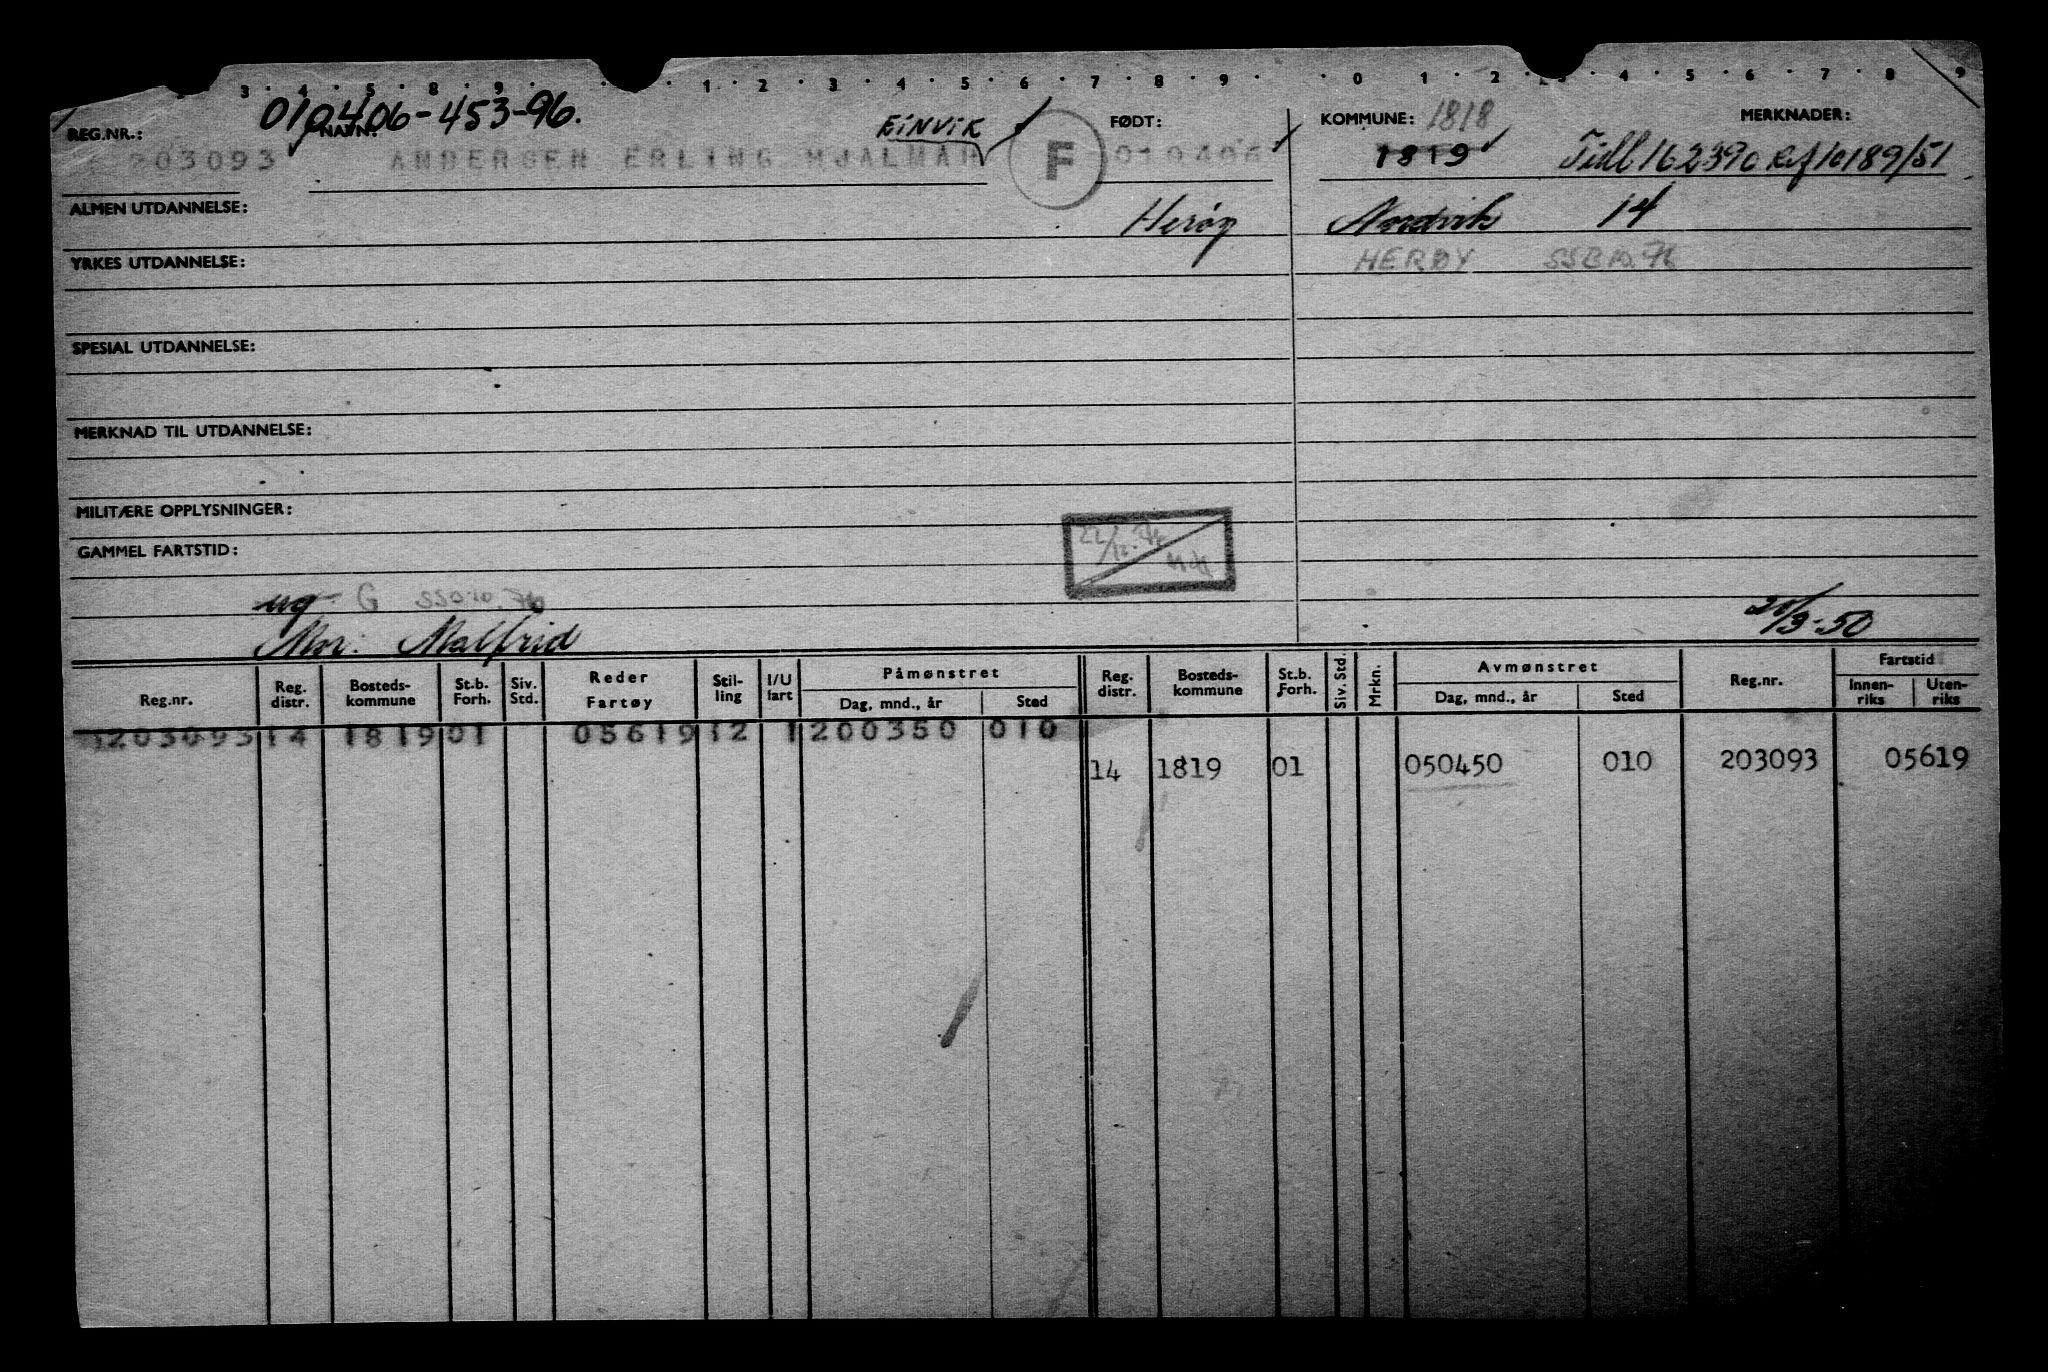 3 · 4 · 5 · 8 · 9 · · · · 1 · 2 · 3 · 4 · 5 · 6 · 7 · 8 · 9 · · 0 · 1 · 2 · 4 · 5 · 6 · 7 · 8 · 9
010406-453-96.
REG.NR.: NAVN: EiNViK FØDT: KOMMUNE: 1818 MERKNADER:
203093 ANDERSEN ERLING HJALMAR F 010406 1819 Tidl 162390 Ref 10189/51
ALMEN UTDANNELSE: Herøy Nordvik 14
YRKES UTDANNELSE: HERØY SSB 10.76
SPESIAL UTDANNELSE:
MERKNAD TIL UTDANNELSE:
MILITÆRE OPPLYSNINGER:
GAMMEL FARTSTID:
ug G
Mor: Malfrid
Påmønstret Avmønstret Fartstid
Reg.nr. Reg. distr. Bosteds-kommune St.b. Forh. Siv. Std. Reder Fartøy Stil-ling I/U fart Dag, mnd., år Sted Reg. distr. Bosteds-kommune St.b. Forh. Siv. Std. Mrkn. Dag, mnd., år Sted Reg.nr. Innen-riks Uten-riks
203093 14 1819 01 05619 12 1 200350 010
14 1819 01 050450 010 203093 05619